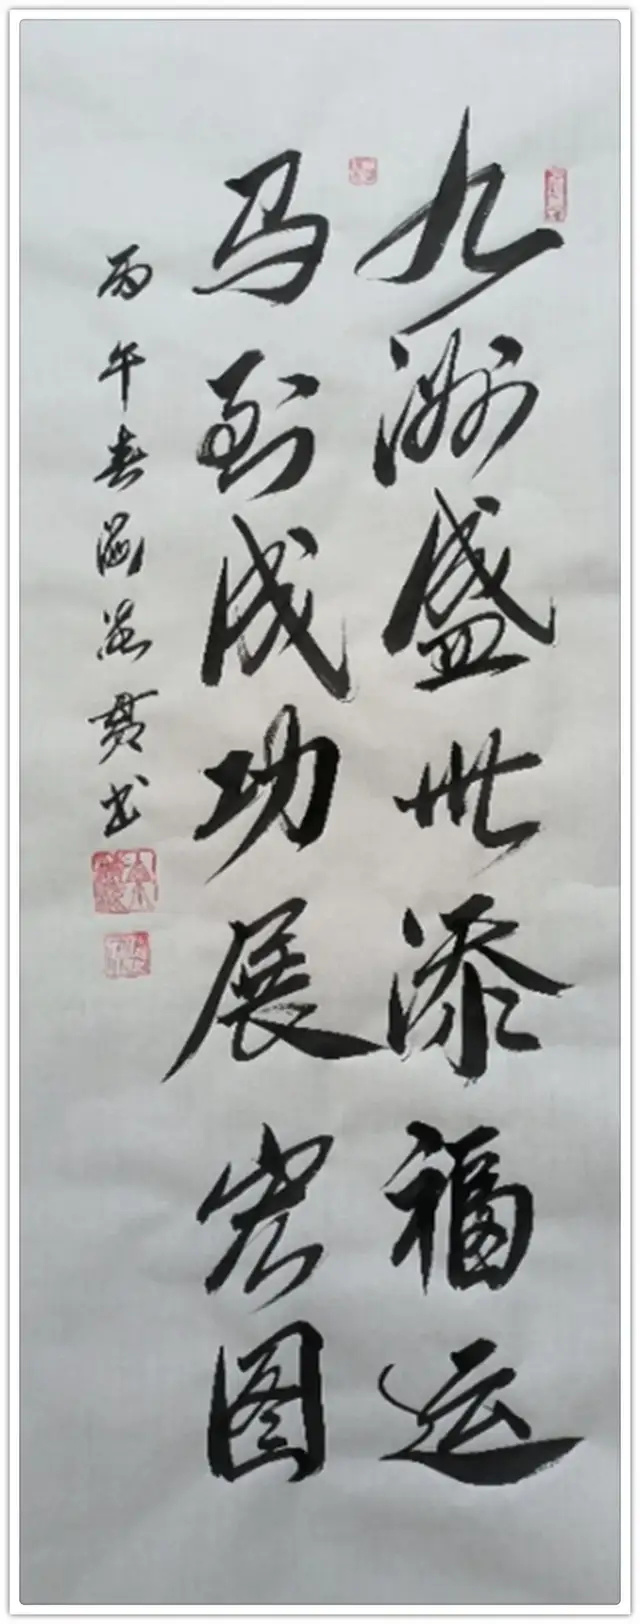 九洲盛世添福运
马到成功展宏图
丙午春 书